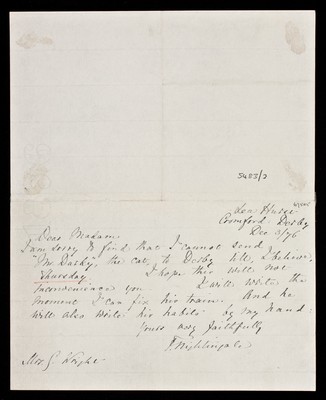 5483/2
Lea Hurst
Cromford Derby
Dec 3/76
Dear Madam
I am sorry to find that I cannot send
"Mr Darky", the cat, to Derby till, I believe,
Thursday. I hope this will not
inconvenience you I will write the
moment I can fix his train. And he
will also write his habits by my hand:
yours very faithfully
F Nightingale
Mrs G. Wright